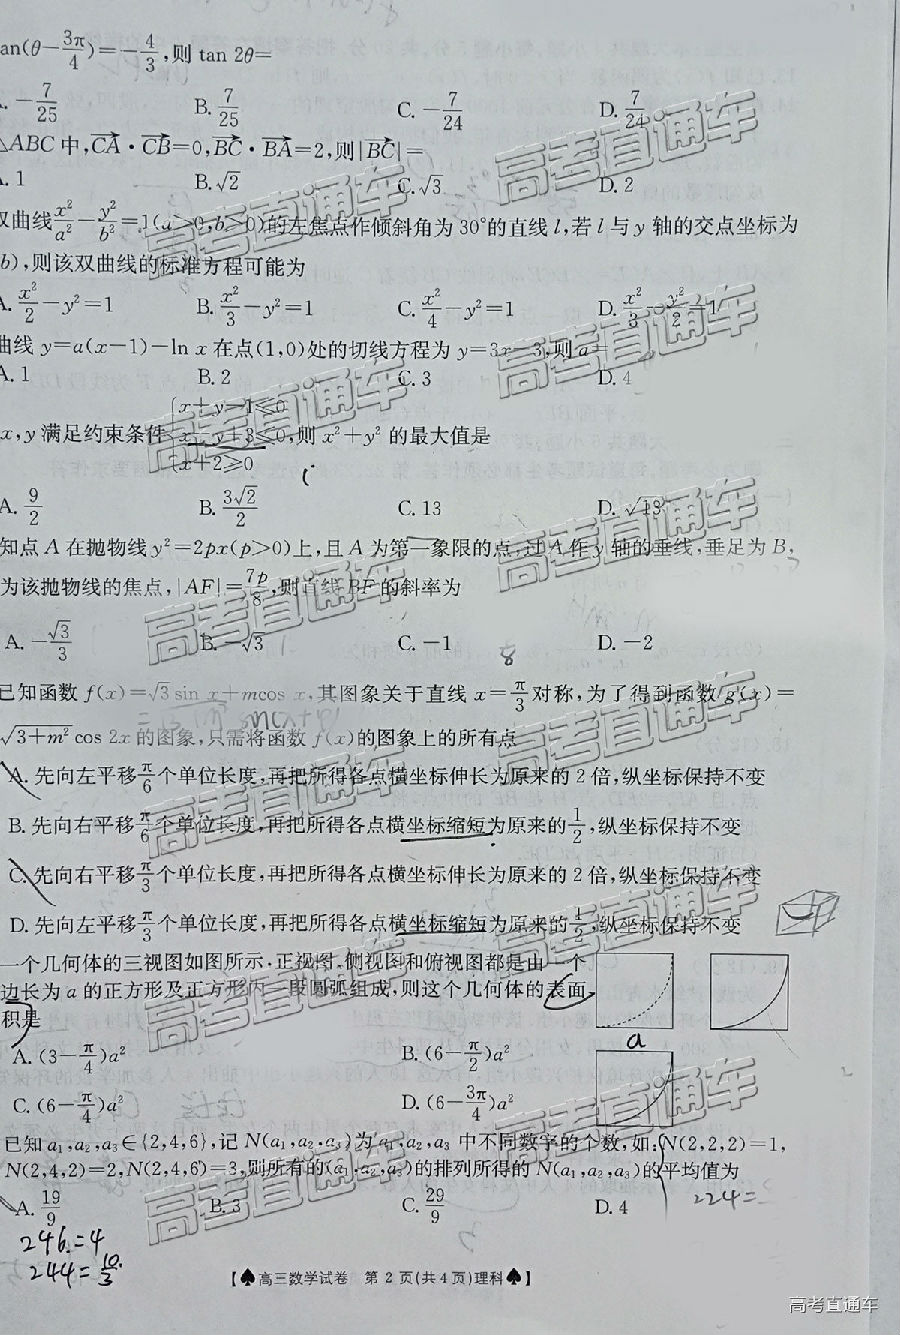 an(θ-3π/4)=-4/3,则 tan 2θ=
. -7/25 B. 7/25 C. -7/24 D. 7/24
△ABC 中,CA·CB=0,BC·BA=2,则|BC|=
. 1 B. √2 C. √3 D. 2
双曲线x²/a²-y²/b²=1(a>0,b>0)的左焦点作倾斜角为 30°的直线 l,若 l 与 y 轴的交点坐标为
b),则该双曲线的标准方程可能为
A. x²/2-y²=1 B. x²/3-y²=1 C. x²/4-y²=1 D. x²/3-y²/2=1
曲线 y=a(x-1)-ln x 在点(1,0)处的切线方程为 y=3x-3,则 a=
A. 1 B. 2 C. 3 D. 4
x+y-1≤0
x,y 满足约束条件 x-y+3≤0,则 x²+y² 的最大值是
x+2≥0
A. 9/2 B. 3√2/2 C. 13 D. √13
知点 A 在抛物线 y²=2px(p>0)上,且 A 为第一象限的点,过 A 作 y 轴的垂线,垂足为 B,
为该抛物线的焦点,|AF|=7p/8,则直线 BF 的斜率为
A. -√3/3 B. -√3 C. -1 D. -2
8
已知函数 f(x)=√3sin x+mcos x,其图象关于直线 x=π/3 对称,为了得到函数 g(x)=
√3+m² cos 2x 的图象,只需将函数 f(x)的图象上的所有点
A. 先向左平移π/6个单位长度,再把所得各点横坐标伸长为原来的 2 倍,纵坐标保持不变
B. 先向右平移π/6个单位长度,再把所得各点横坐标缩短为原来的1/2,纵坐标保持不变
C. 先向右平移π/3个单位长度,再把所得各点横坐标伸长为原来的 2 倍,纵坐标保持不变
D. 先向左平移π/3个单位长度,再把所得各点横坐标缩短为原来的1/2,纵坐标保持不变
一个几何体的三视图如图所示,正视图、侧视图和俯视图都是由一个
边长为 a 的正方形及正方形内一段圆弧组成,则这个几何体的表面
积是
a
A. (3-π/4)a² B. (6-π/2)a²
C. (6-π/4)a² D. (6-3π/4)a²
已知 a₁,a₂,a₃∈{2,4,6},记 N(a₁,a₂,a₃)为 a₁,a₂,a₃ 中不同数字的个数,如:N(2,2,2)=1,
N(2,4,2)=2,N(2,4,6)=3,则所有的(a₁,a₂,a₃)的排列所得的 N(a₁,a₂,a₃)的平均值为
A. 19/9 B. 3 C. 29/9 D. 4
224=
246=4
244=10/3
【♠高三数学试卷 第 2 页(共 4 页)理科♠】
高考直通车
高考直通车
高考直通车
高考直通车
高考直通车
高考直通车
高考直通车
高考直通车
高考直通车
高考直通车
高考直通车
高考直通车
高考直通车